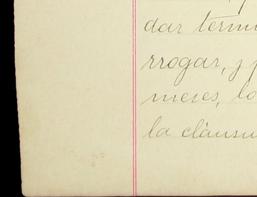 dar térmi
rrogar, y p
meses, lo
la cláusu